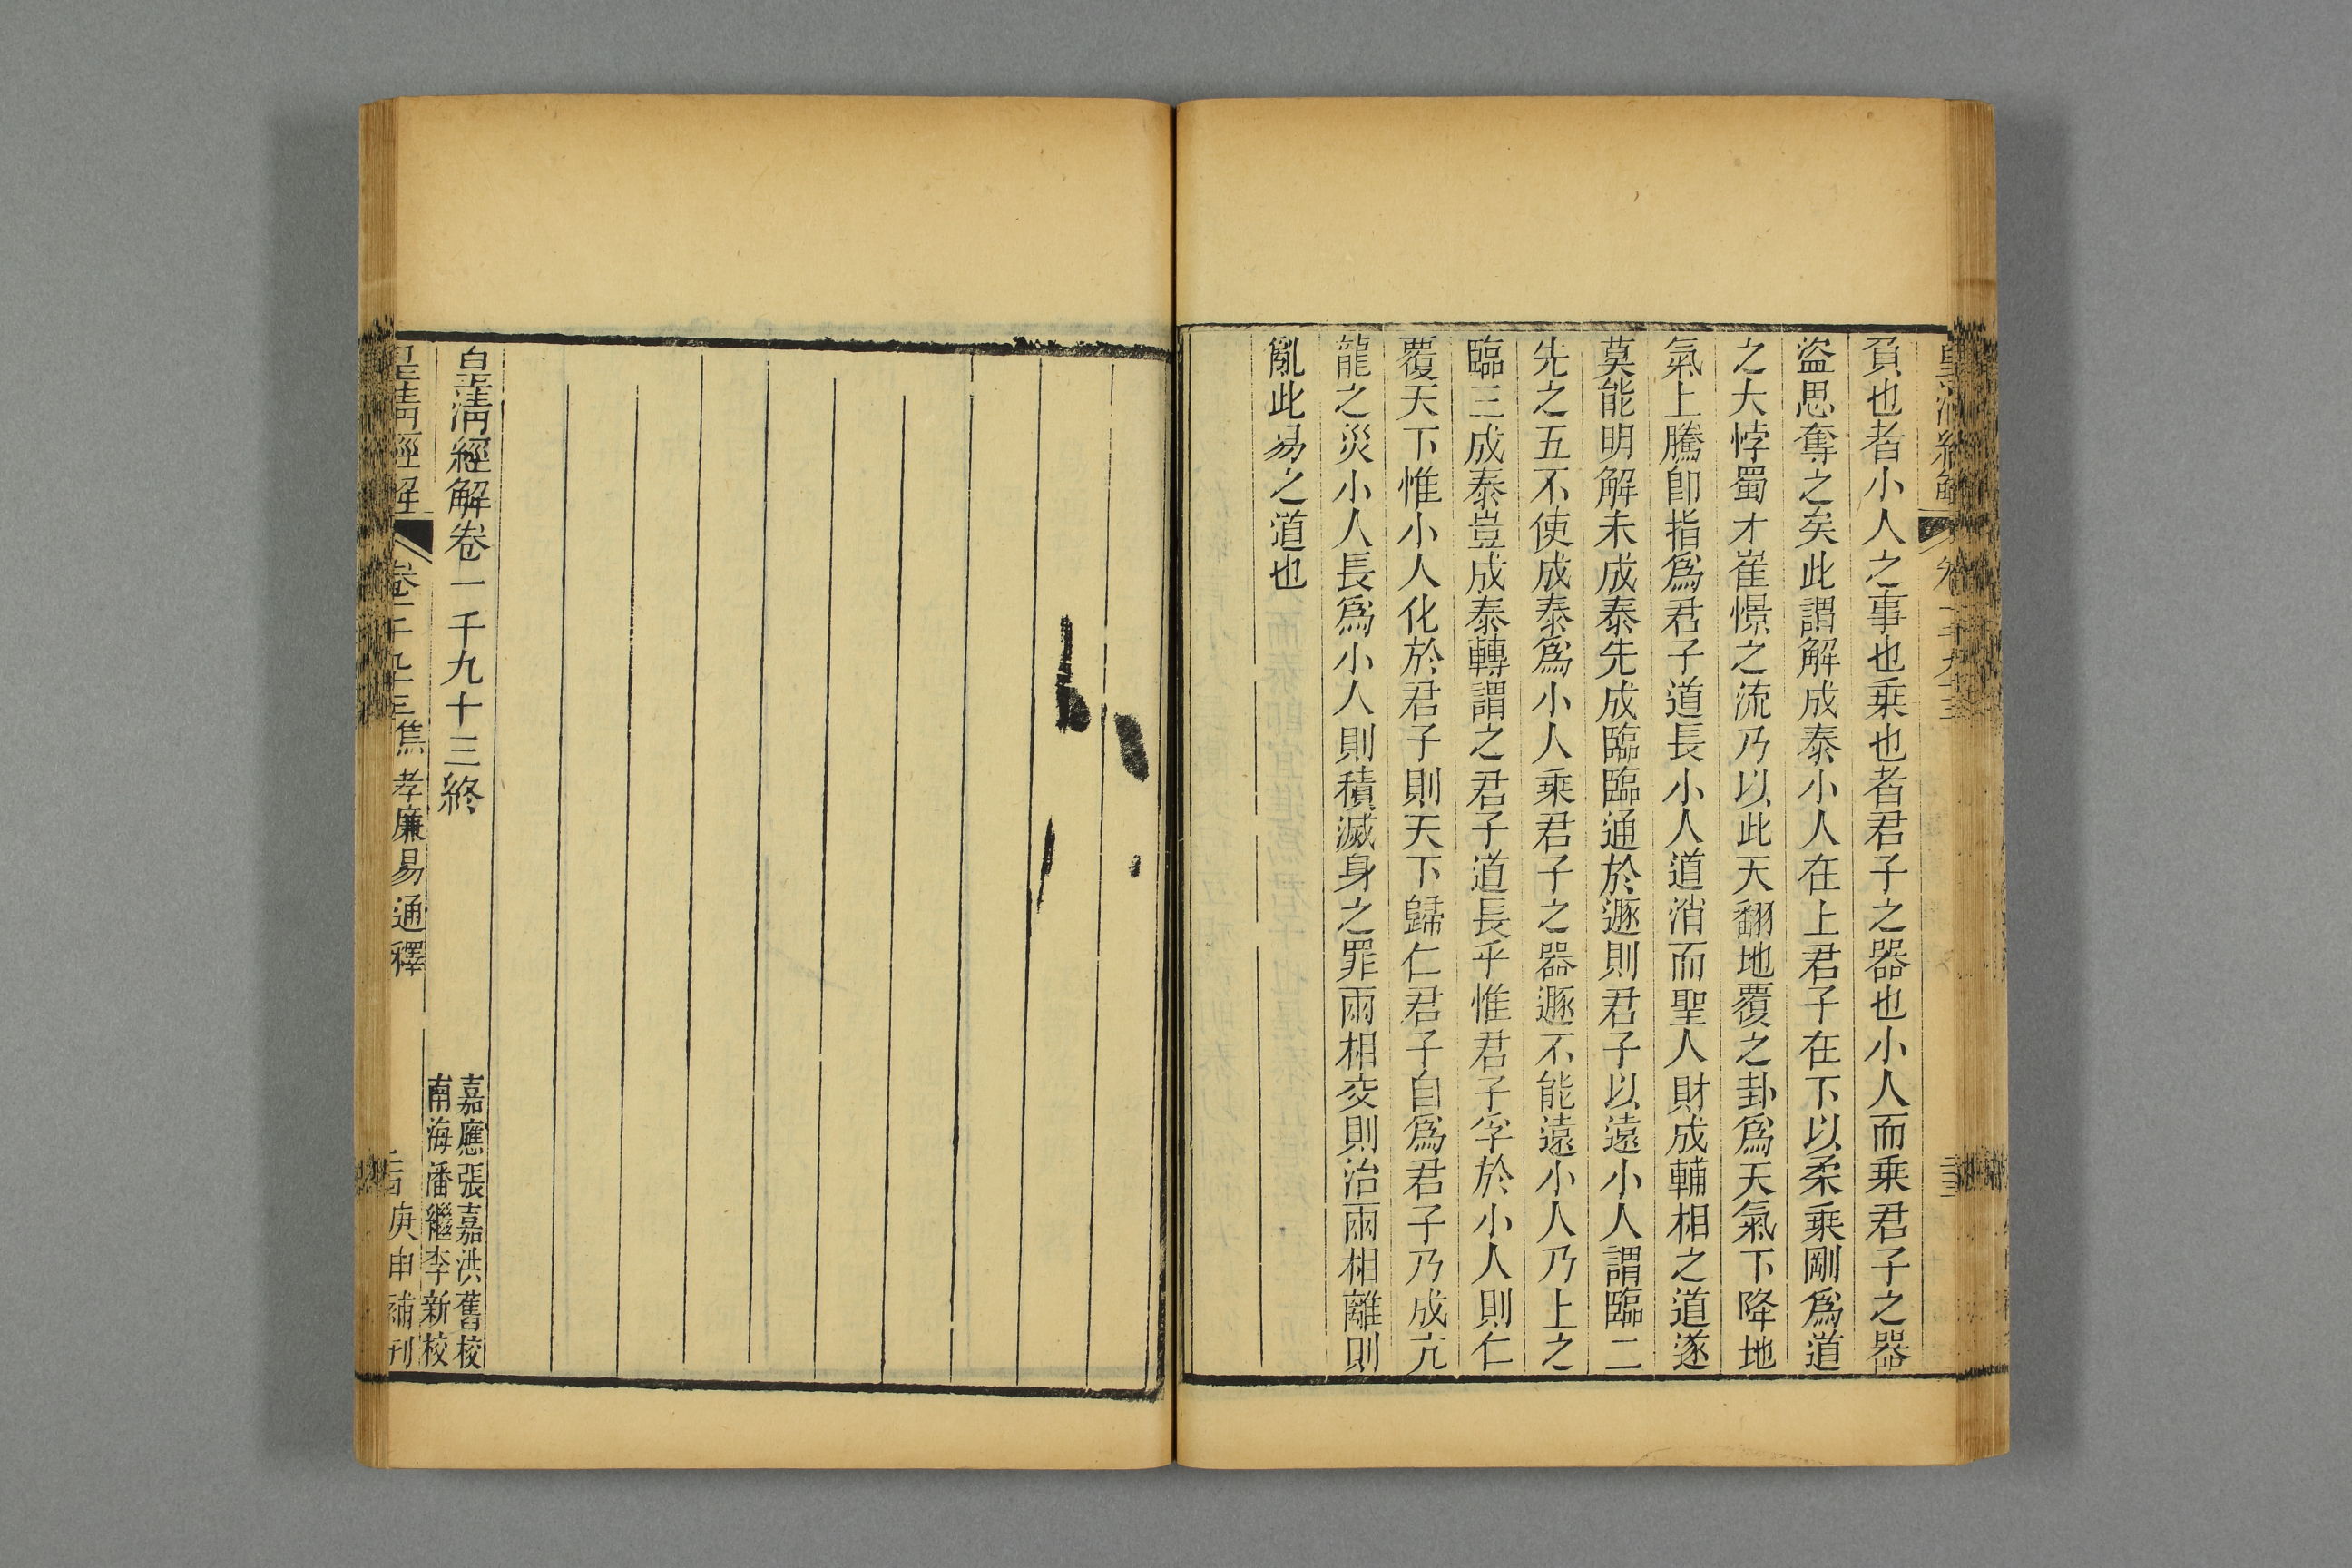 負也者小人之事也乘也者君子之器也小人而乘君子之器
盜思奪之矣此謂解成泰小人在上君子在下以柔乘剛爲道
之大悖蜀才崔憬之流乃以此天翻地覆之卦爲天氣下降地
氣上騰卽指爲君子道長小人道消而聖人財成輔相之道遂
莫能明解未成泰先成臨臨通於遯則君子以遠小人謂臨二
先之五不使成泰爲小人乘君子之器遯不能遠小人乃上之
臨三成泰豈成泰轉謂之君子道長乎惟君子孚於小人則仁
覆天下惟小人化於君子則天下歸仁君子自爲君子乃成亢
龍之災小人長爲小人則積滅身之罪兩相交則治兩相離則
亂此易之道也
皇淸經解卷一千九十三終
嘉應張嘉洪舊校
南海潘繼李新校
皇淸經解
卷一千九十三
焦孝廉易通釋
庚申補刊